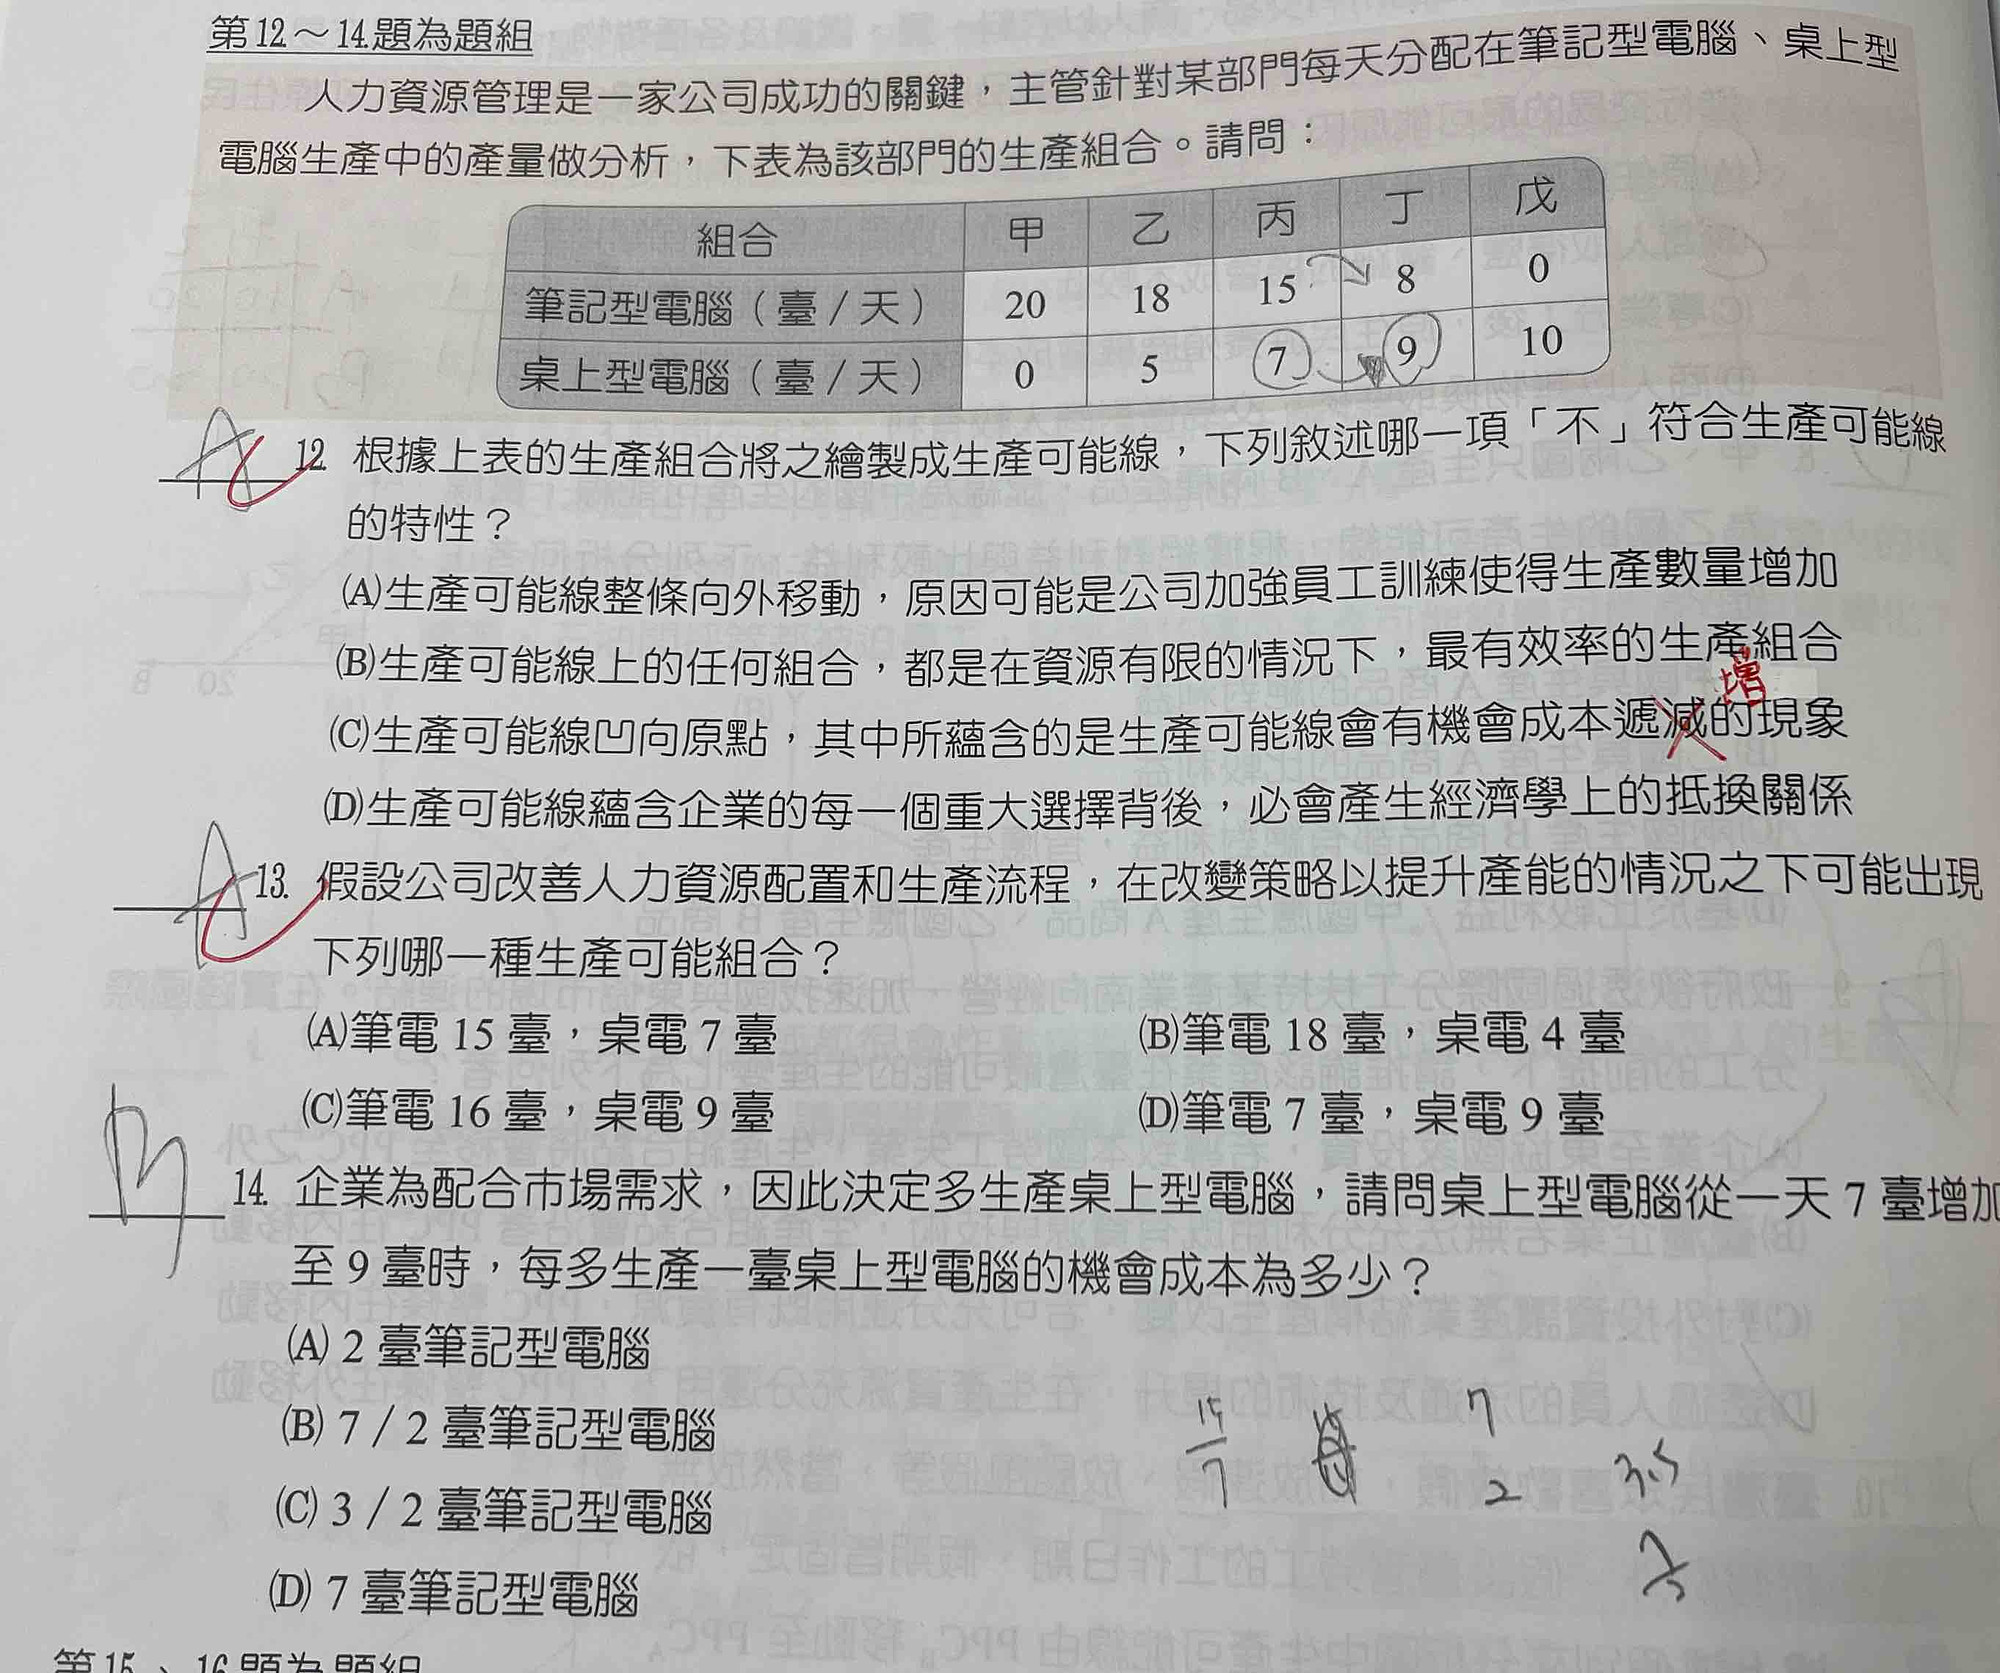 第12～14題為題組
人力資源管理是一家公司成功的關鍵，主管針對某部門每天分配在筆記型電腦、桌上型
電腦生產中的產量做分析，下表為該部門的生產組合。請問：
組合 甲 乙 丙 丁 戊
筆記型電腦（臺／天） 20 18 15 8 0
桌上型電腦（臺／天） 0 5 7 9 10
A 12. 根據上表的生產組合將之繪製成生產可能線，下列敘述哪一項「不」符合生產可能線
的特性？
(A)生產可能線整條向外移動，原因可能是公司加強員工訓練使得生產數量增加
(B)生產可能線上的任何組合，都是在資源有限的情況下，最有效率的生產組合
增
(C)生產可能線凹向原點，其中所蘊含的是生產可能線會有機會成本遞減的現象
(D)生產可能線蘊含企業的每一個重大選擇背後，必會產生經濟學上的抵換關係
A 13. 假設公司改善人力資源配置和生產流程，在改變策略以提升產能的情況之下可能出現
下列哪一種生產可能組合？
(A)筆電 15 臺，桌電 7 臺 (B)筆電 18 臺，桌電 4 臺
(C)筆電 16 臺，桌電 9 臺 (D)筆電 7 臺，桌電 9 臺
B 14. 企業為配合市場需求，因此決定多生產桌上型電腦，請問桌上型電腦從一天 7 臺增加
至 9 臺時，每多生產一臺桌上型電腦的機會成本為多少？
(A) 2 臺筆記型電腦
(B) 7 / 2 臺筆記型電腦
(C) 3 / 2 臺筆記型電腦
(D) 7 臺筆記型電腦
15
7
7
2
3.5
第15、16題為題組